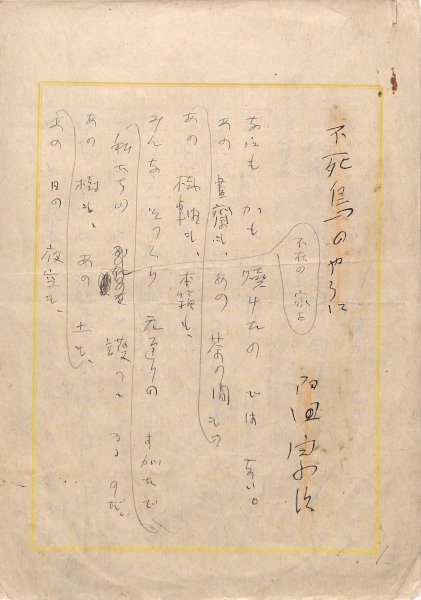 不死鳥のやうに
内田
なにもかも焼けたのではない。
あの書齋も、あの茶の間も、
あの機軸も、本箱も、
みんなそつくり元通りのすがたで、
私たちの
不在の家を
護つてゐるのだ。
あの樹も、あの土も、
あの日の夜空も、